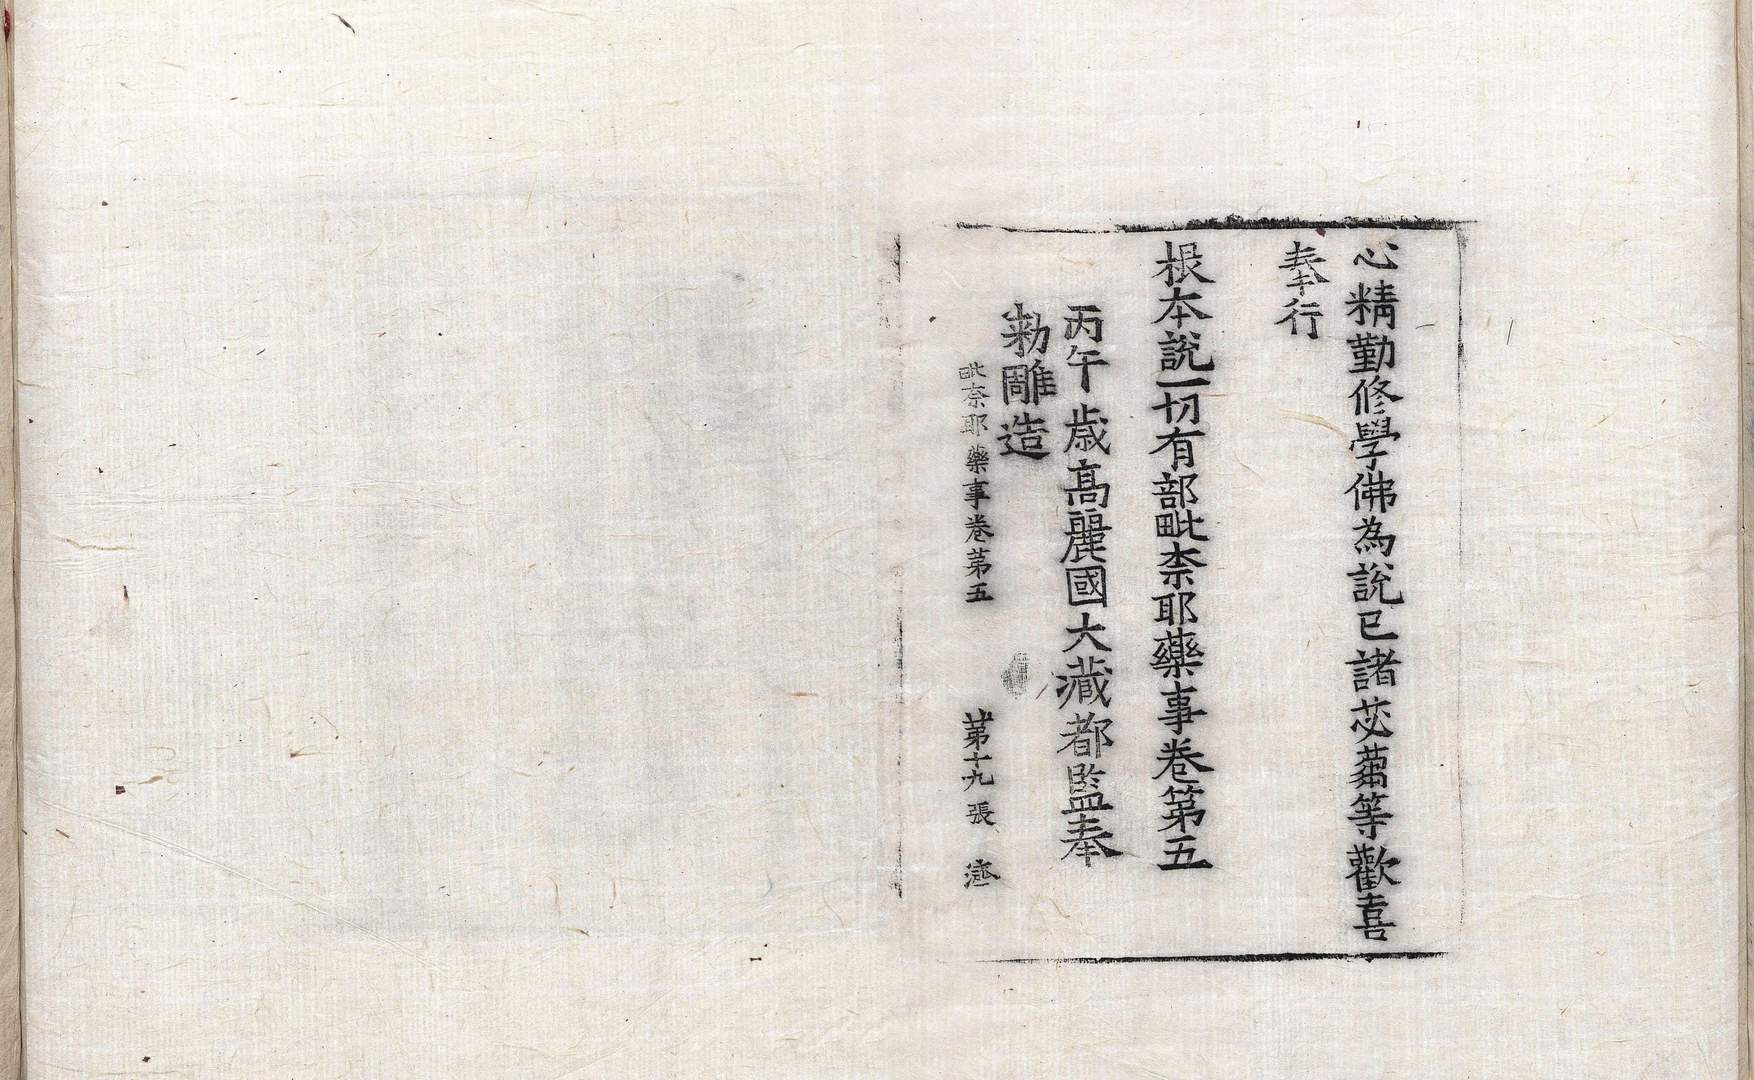 心精勤修學佛為說已諸苾蒭等歡喜
奉行
根本說一切有部毗柰耶藥事卷第五
丙午歳高麗國大藏都監奉
勑雕造
毗奈耶藥事卷第五 第十九張